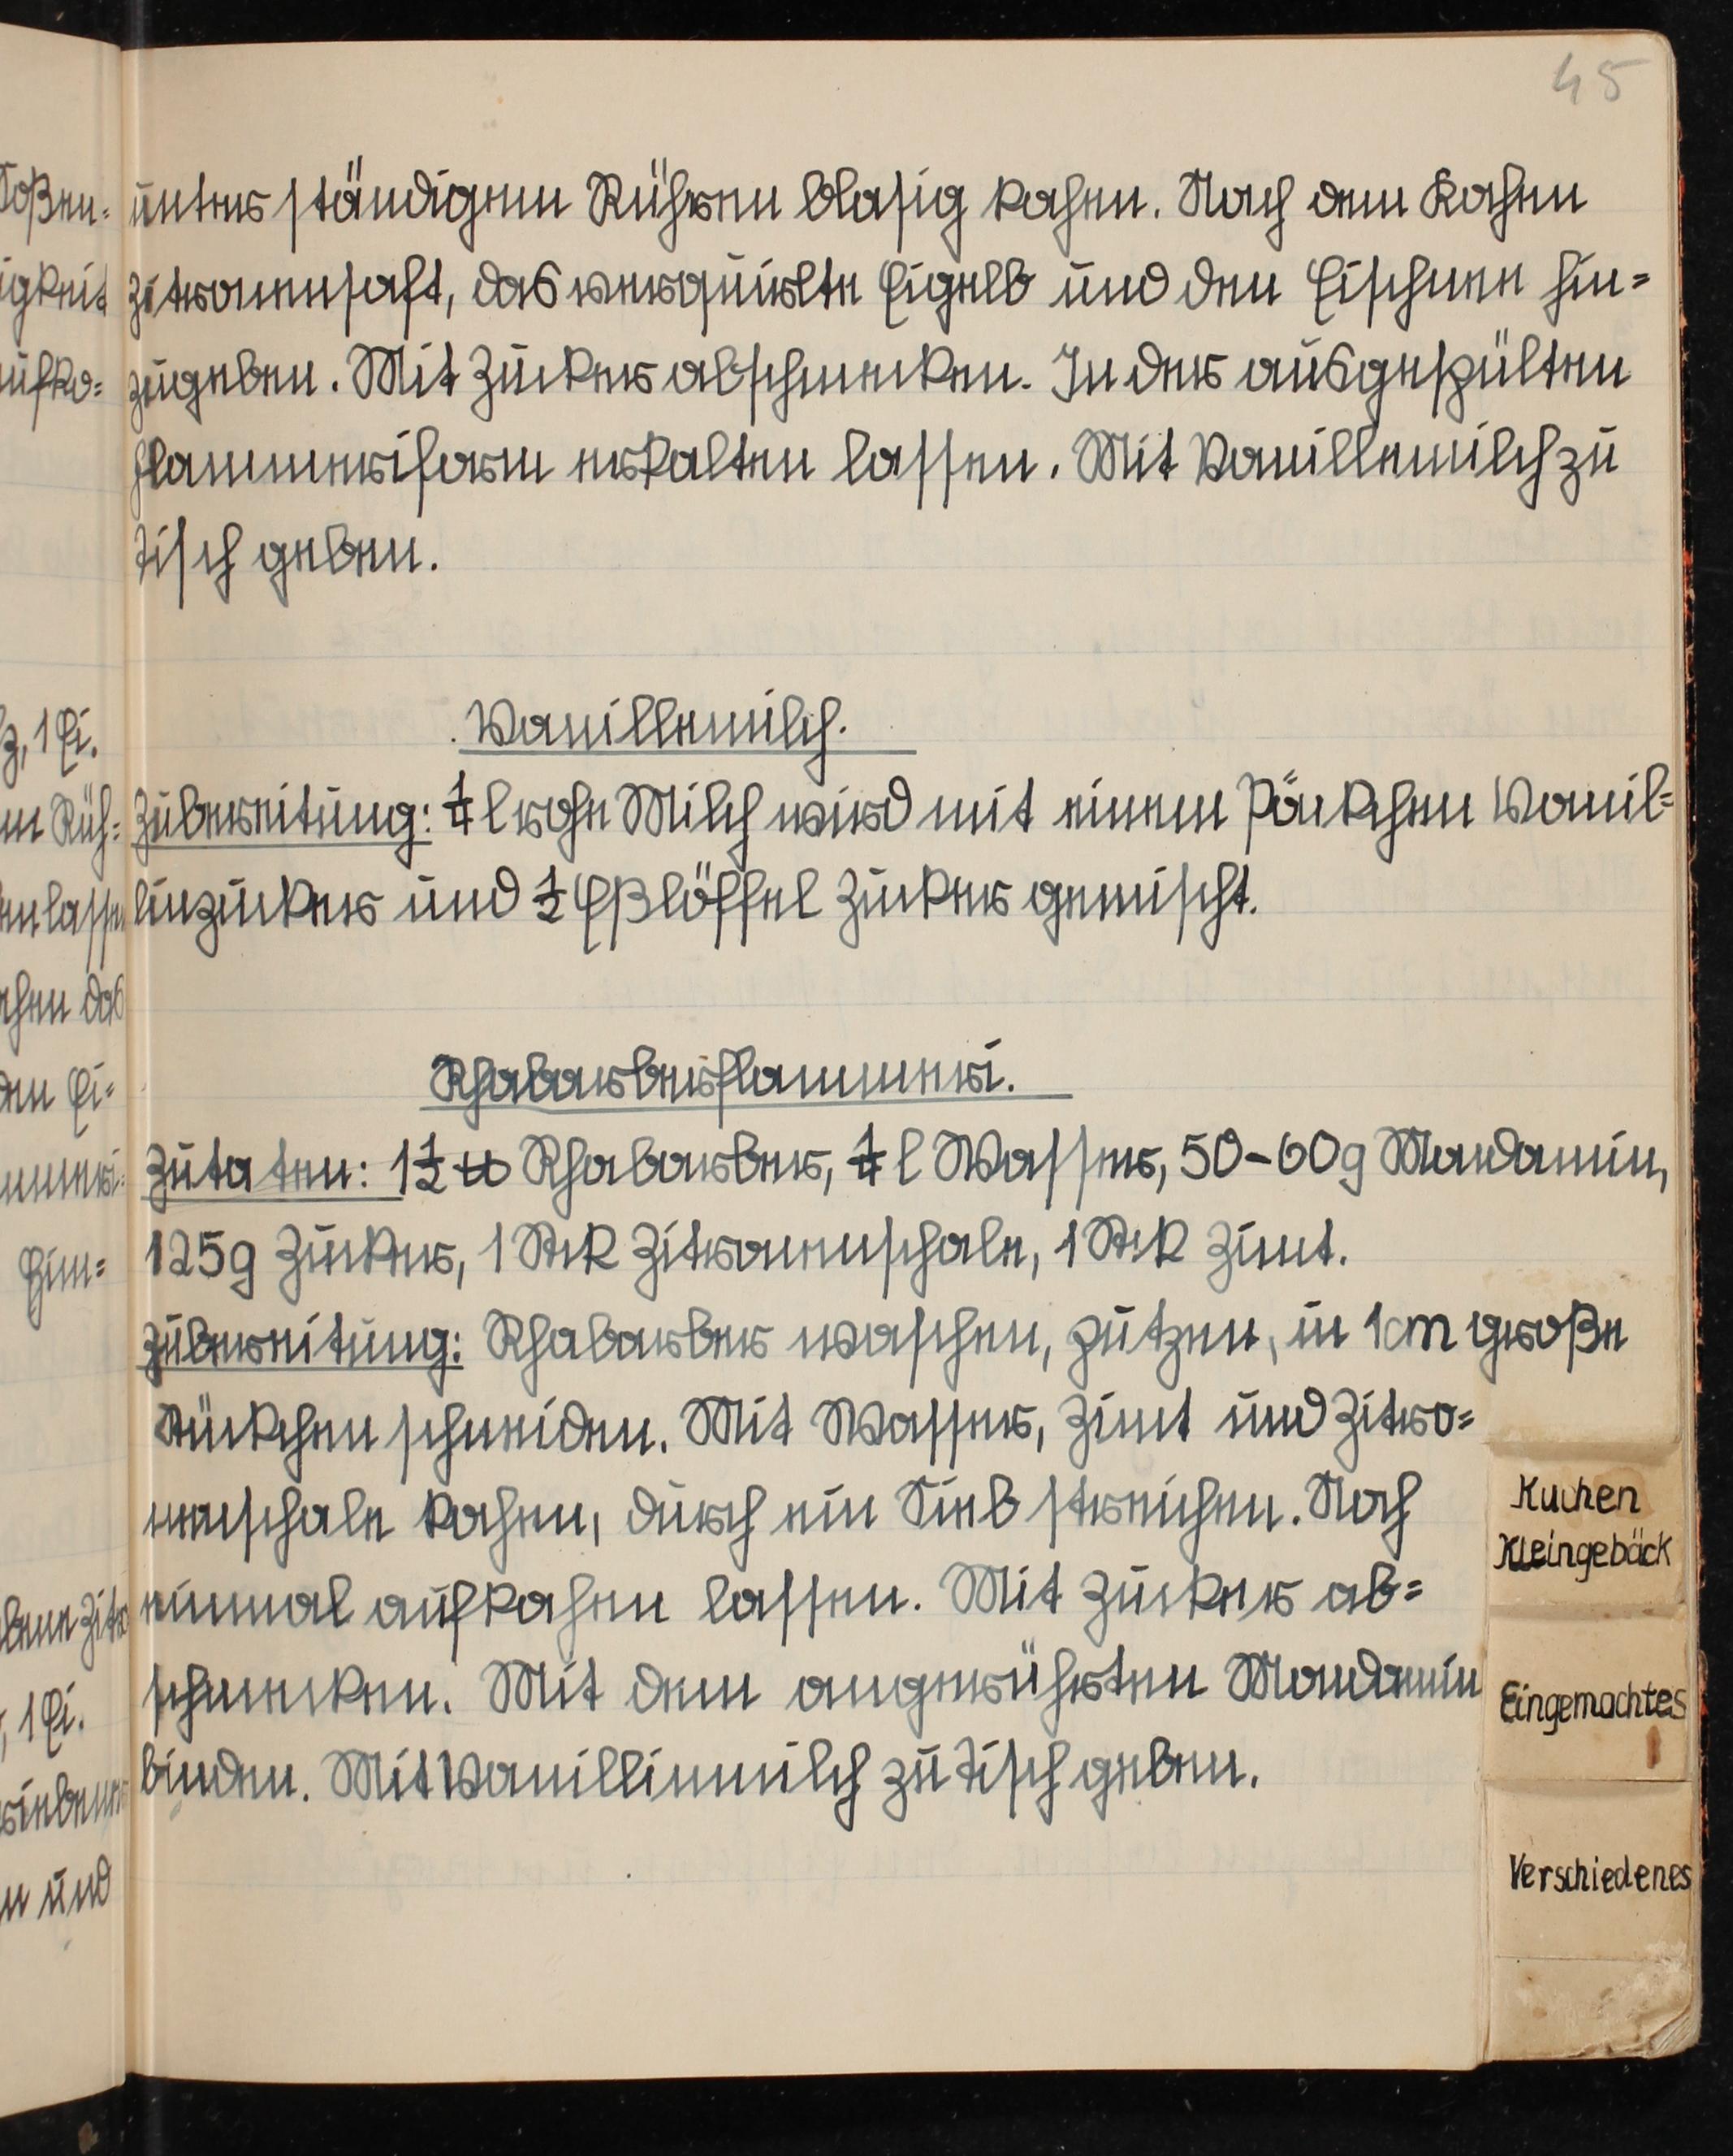 45
unter ständigem Rühren blasig kochen. Nach dem Kochen
Zitronensaft, das verquirlte Eigelb und den Eischnee hin=
zugeben. Mit Zucker abschmecken. In der ausgespülten
Flammeriform erkalten lassen. Mit Vanillemilch zu
Tisch geben.
Vanillemilch.
Zubereitung: ¼ l rohe Milch wird mit einem Päckchen Vanil=
linzucker und ½ Eßlöffel Zucker gemischt.
Rhabarberflammeri.
Zutaten: 1½ ℔ Rhabarber, ¼ l Wasser, 50-60g Mondamin,
125g Zucker, 1 Stck Zitronenschale, 1 Stck Zimt.
Zubereitung: Rhabarber waschen, putzen, in 1cm große
Stückchen schneiden. Mit Wasser, Zimt und Zitro=
nenschale kochen, durch ein Sieb streichen. Noch
einmal aufkochen lassen. Mit Zucker ab=
schmecken. Mit dem angerührten Mondamin
binden. Mit Vanillinmilch zu Tisch geben.
Kuchen
Kleingebäck
Eingemachtes
Verschiedenes